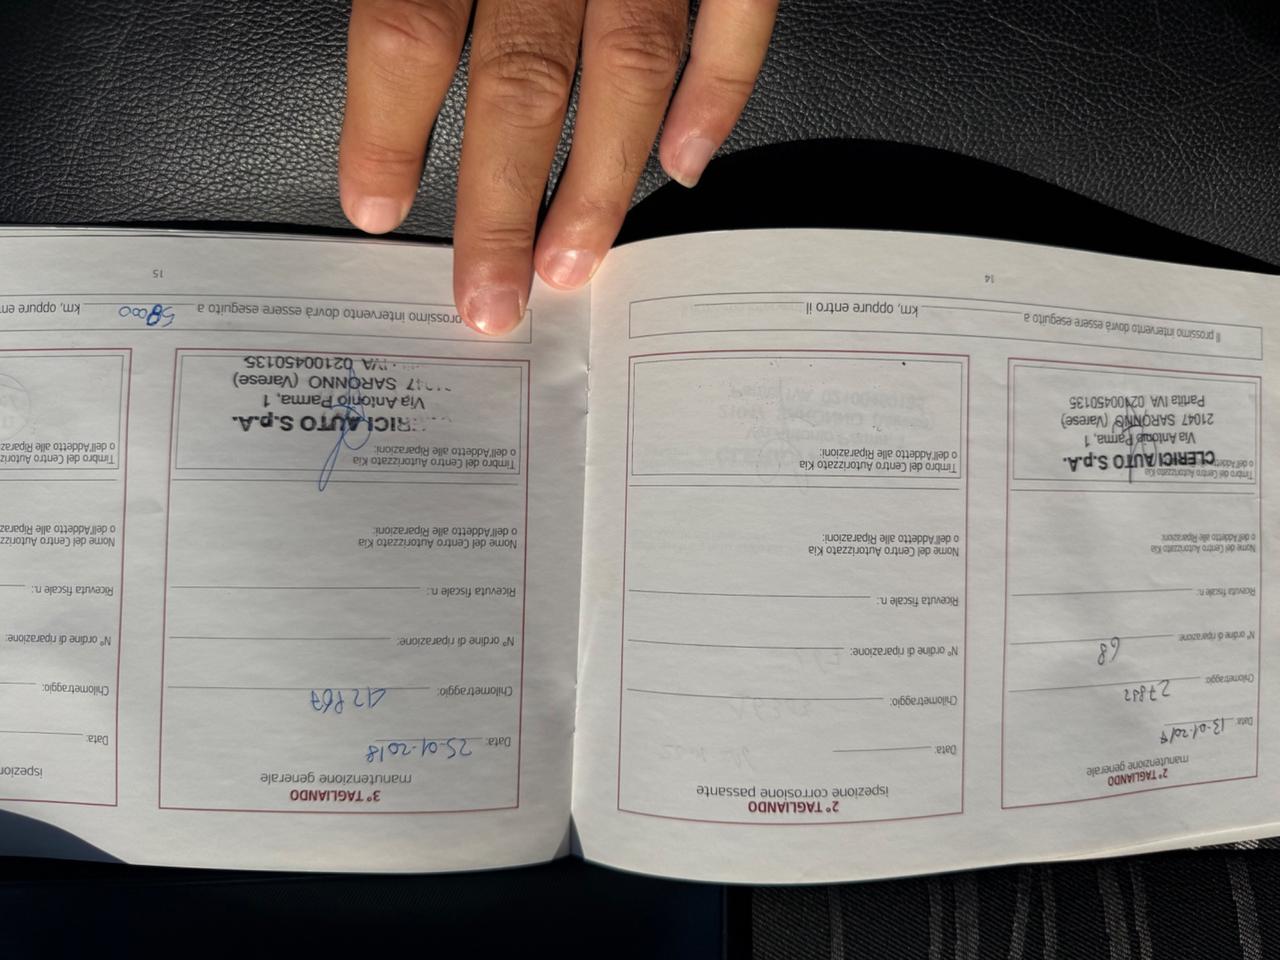 2° TAGLIANDO
manutenzione generale
Data: 13-01-2017
Chilometraggio: 27892
N° ordine di riparazione: 68
Ricevuta fiscale n.:
Nome del Centro Autorizzato Kia
o dell'Addetto alle Riparazioni:
Timbro del Centro Autorizzato Kia
o dell'Addetto alle Riparazioni:
CLERICI AUTO S.p.A.
Via Antonio Parma, 1
21047 SARONNO (Varese)
Partita IVA 02100450135
2° TAGLIANDO
ispezione corrosione passante
Data:
Chilometraggio:
N° ordine di riparazione:
Ricevuta fiscale n.:
Nome del Centro Autorizzato Kia
o dell'Addetto alle Riparazioni:
Timbro del Centro Autorizzato Kia
o dell'Addetto alle Riparazioni:
Il prossimo intervento dovrà essere eseguito a km, oppure entro il
14
3° TAGLIANDO
manutenzione generale
Data: 25-01-2018
Chilometraggio: 42867
N° ordine di riparazione:
Ricevuta fiscale n.:
Nome del Centro Autorizzato Kia
o dell'Addetto alle Riparazioni:
Timbro del Centro Autorizzato Kia
o dell'Addetto alle Riparazioni:
ERICI AUTO S.p.A.
Via Antonio Parma, 1
047 SARONNO (Varese)
IVA 02100450135
ispezio
Data:
Chilometraggio:
N° ordine di riparazione:
Ricevuta fiscale n.:
Nome del Centro Autorizz
o dell'Addetto alle Riparaz
Timbro del Centro Autorizz
o dell'Addetto alle Riparaz
prossimo intervento dovrà essere eseguito a 58000 km, oppure en
15